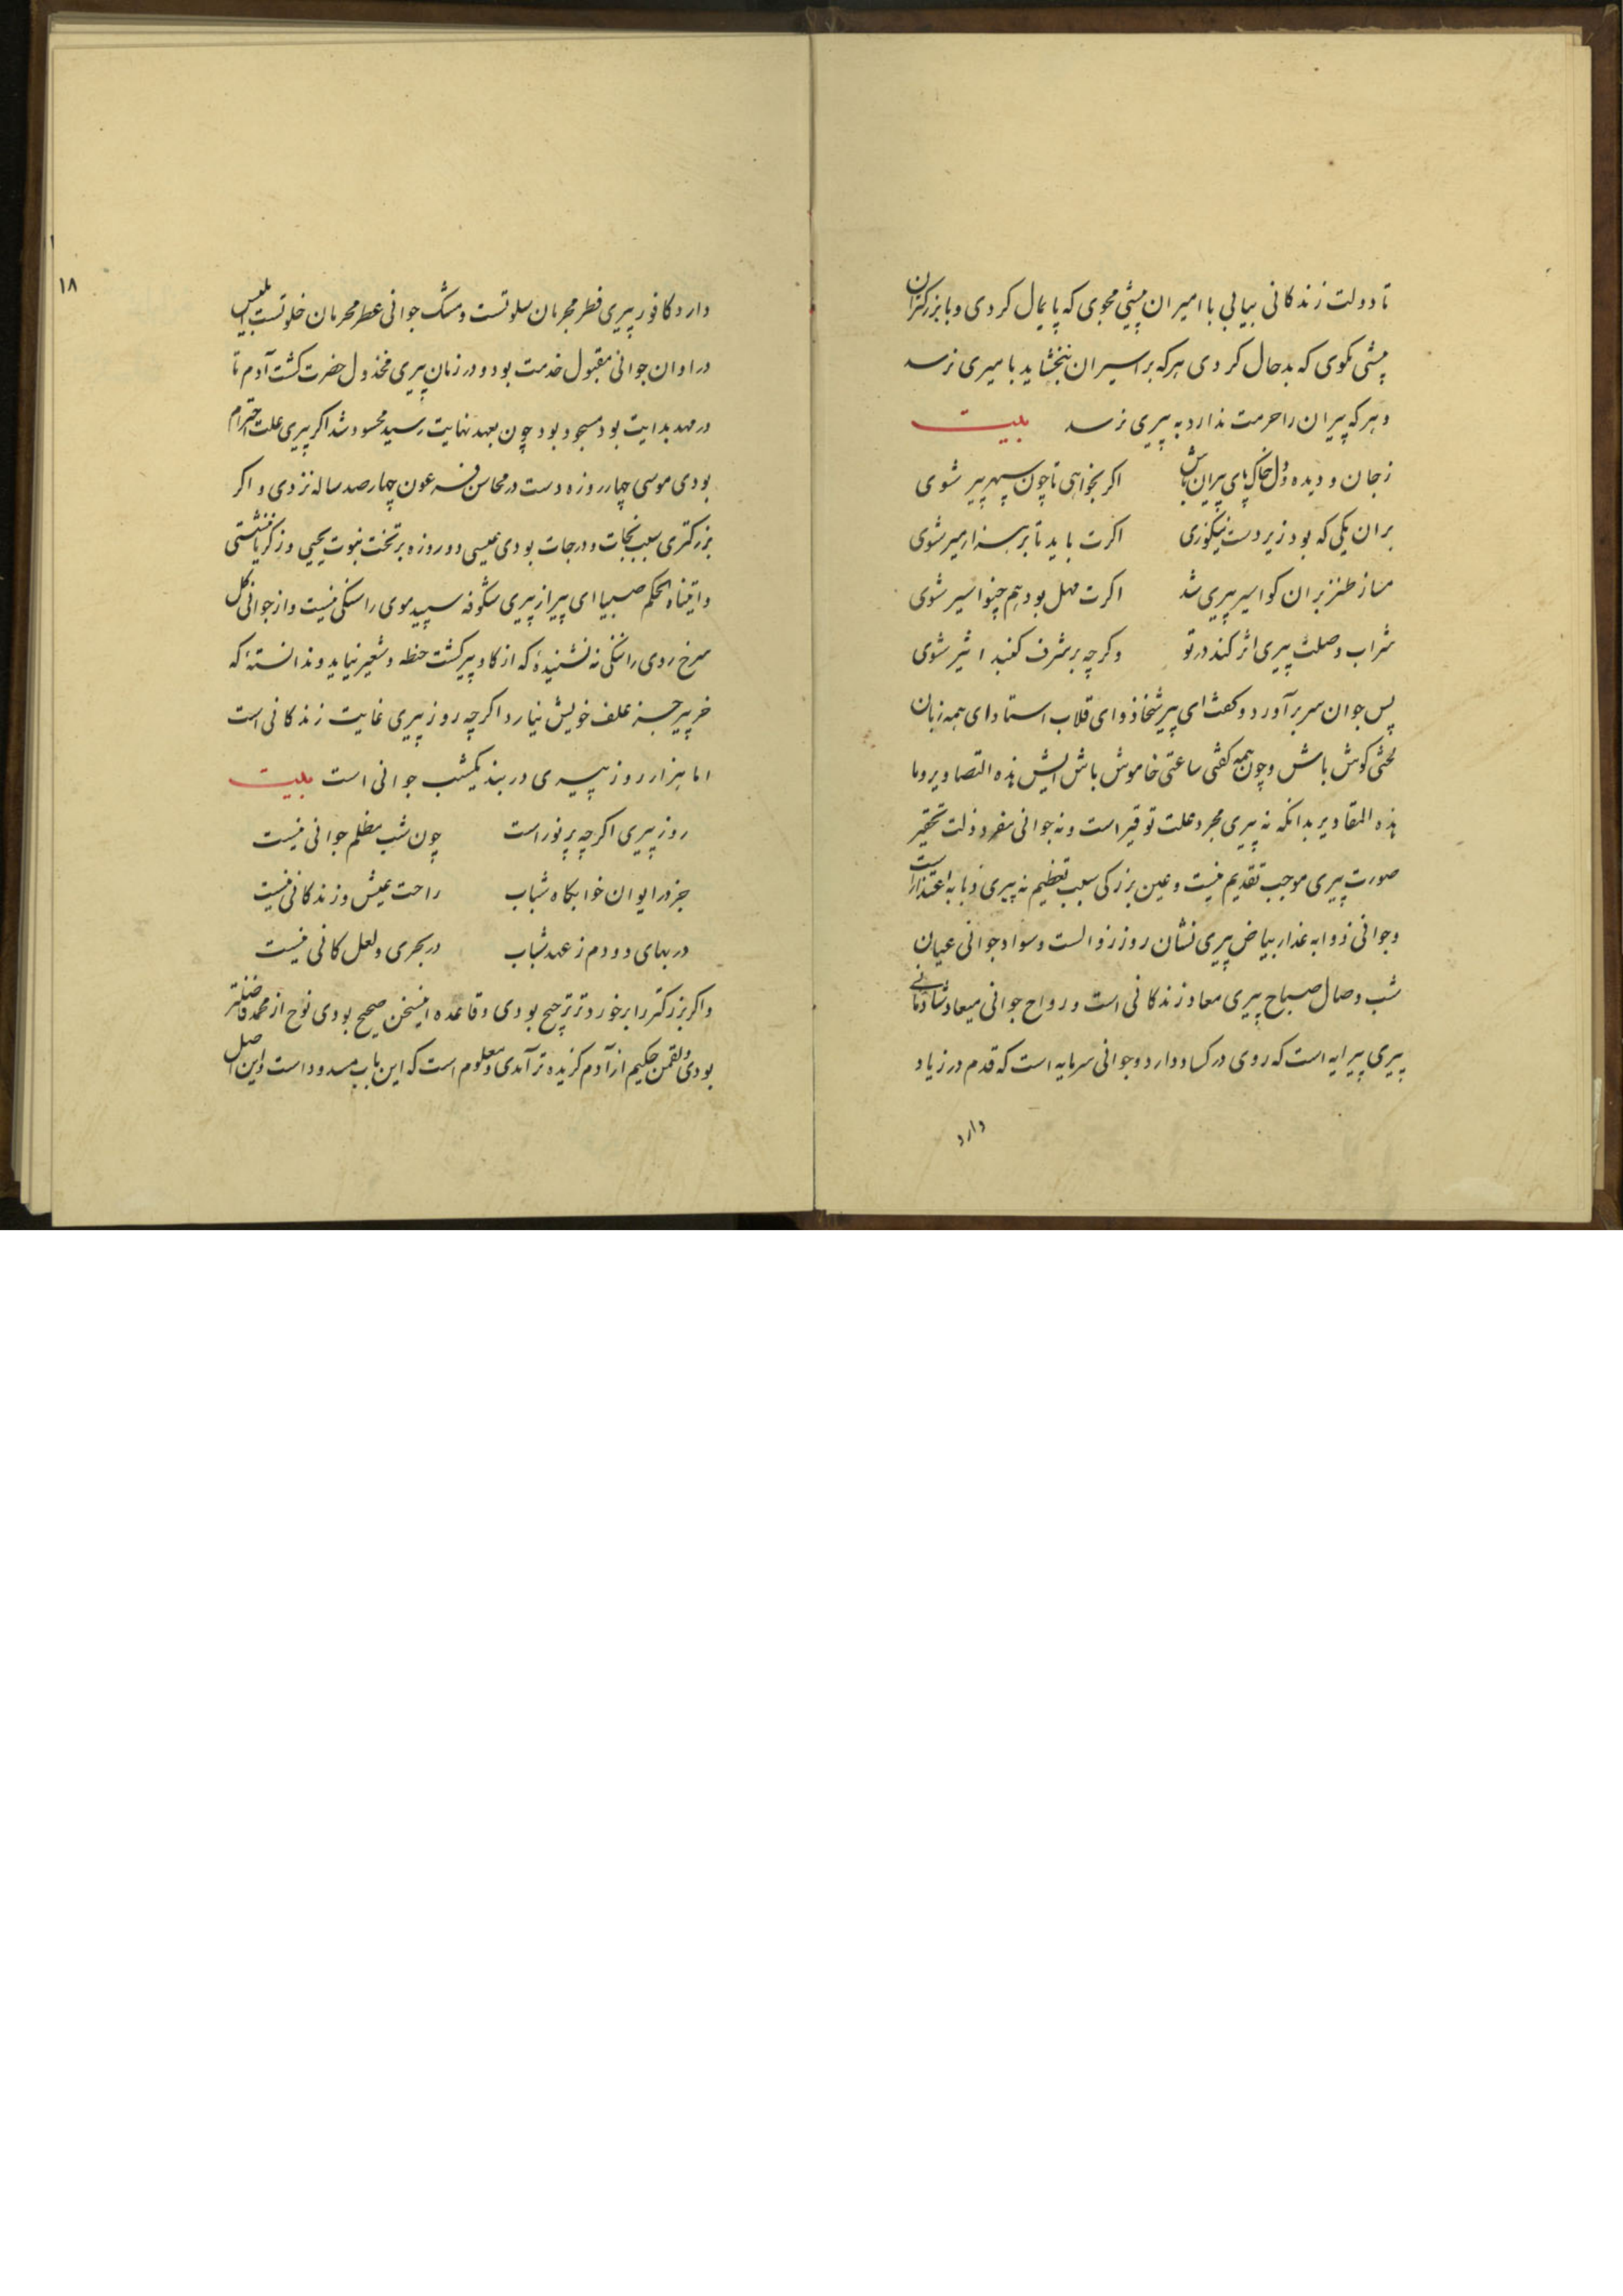 تا دولت زندگانی بیابی با امیران پیشی مجوی که پایمال کردی و با بزرکتران
پیشی مکوی که بدحال کردی هرکه بر اسیران نبخشاید بامیری نرسد
و هرکه پیران را حرمت ندارد به پیری نرسد بیت
زجان و دیده و دل خاک پای پیران باش اکر بخواهی تا چون سپهر پیر شوی
بران یکی که بود زیر دست نیکوزی اکرت باید تا بر هزار میر شوی
مساز طنز بران کو اسیر پیری شد اکرت مهل بود هم چنو اسیر شوی
شراب وصلت پیری اثر کند در تو و کرچه بر شرف کنبد اثیر شوی
پس جوان سر برآورد و کفت ای پیر شخاذ وای قلاب استاد ای همه زبان
لختی کوش باش و چون همه کفتی ساعتی خاموش باش ایش هذه التصاویر وما
هذه المقادیر بدانکه نه پیری مجرد علت توقیر است و نه جوانی مفرد ذلت تحقیر
صورت پیری موجب تقدیم نیست و عین بزرکی سبب تعظیم نه پیری ذبابه اعتذار است
و جوانی ذوابه عذار بیاض پیری نشان روز زوالست و سواد جوانی عیان
شب وصال صباح پیری معاد زندکانی است و رواح جوانی میعاد شادمانی
پیری پیرایه است که روی در کساد دارد و جوانی سرمایه است که قدم در زیاد
دارد
۱۸
دارد کافور پیری فطر مجرمان سلوتست و مشک جوانی عطر محرمان خلوتست ابلیس
در اوان جوانی مقبول خدمت بود و در زمان پیری مخذول حضرت کشت آدم تا
در مهد بدایت بود مسجود بود چون بعهد نهایت رسید محسود شد اکر پیری علت احترام
بودی موسی چهار روزه دست در محاسن فرعون چهارصد ساله نزدی و اکر
بزرکتری سبب نجات و درجات بودی عیسی دو روزه بر تخت نبوت یحیی و زکریا ننشستی
و اتیناه الحکم صبیا ای پیر از پیری شکوفه سپید موی را سنکی نیست و از جوانی کل
سرخ روی را ننکی نه نشنیدهٔ که از کاو پیر کشت حنطه و شعیر نیاید و ندانستهٔ که
خر پیر جز علف خویش نیارد اکرچه روز پیری غایت زندکانی است
اما هزار روز پیری در بند یکشب جوانی است بیت
روز پیری اکرچه پر نور است چون شب مظلم جوانی نیست
جز در ایوان خوابکاه شباب راحت عیش و زندکانی نیست
در بهای دو دم ز عهد شباب در بحری و لعل کانی نیست
و اکر بزرکتر را بر خوردتر ترجیح بودی و قاعده اینسخن صحیح بودی نوح از محمد فاضلتر
بودی و لقمن حکیم از آدم کزیده تر آمدی و معلوم است که این باب مسدود است و این اصل